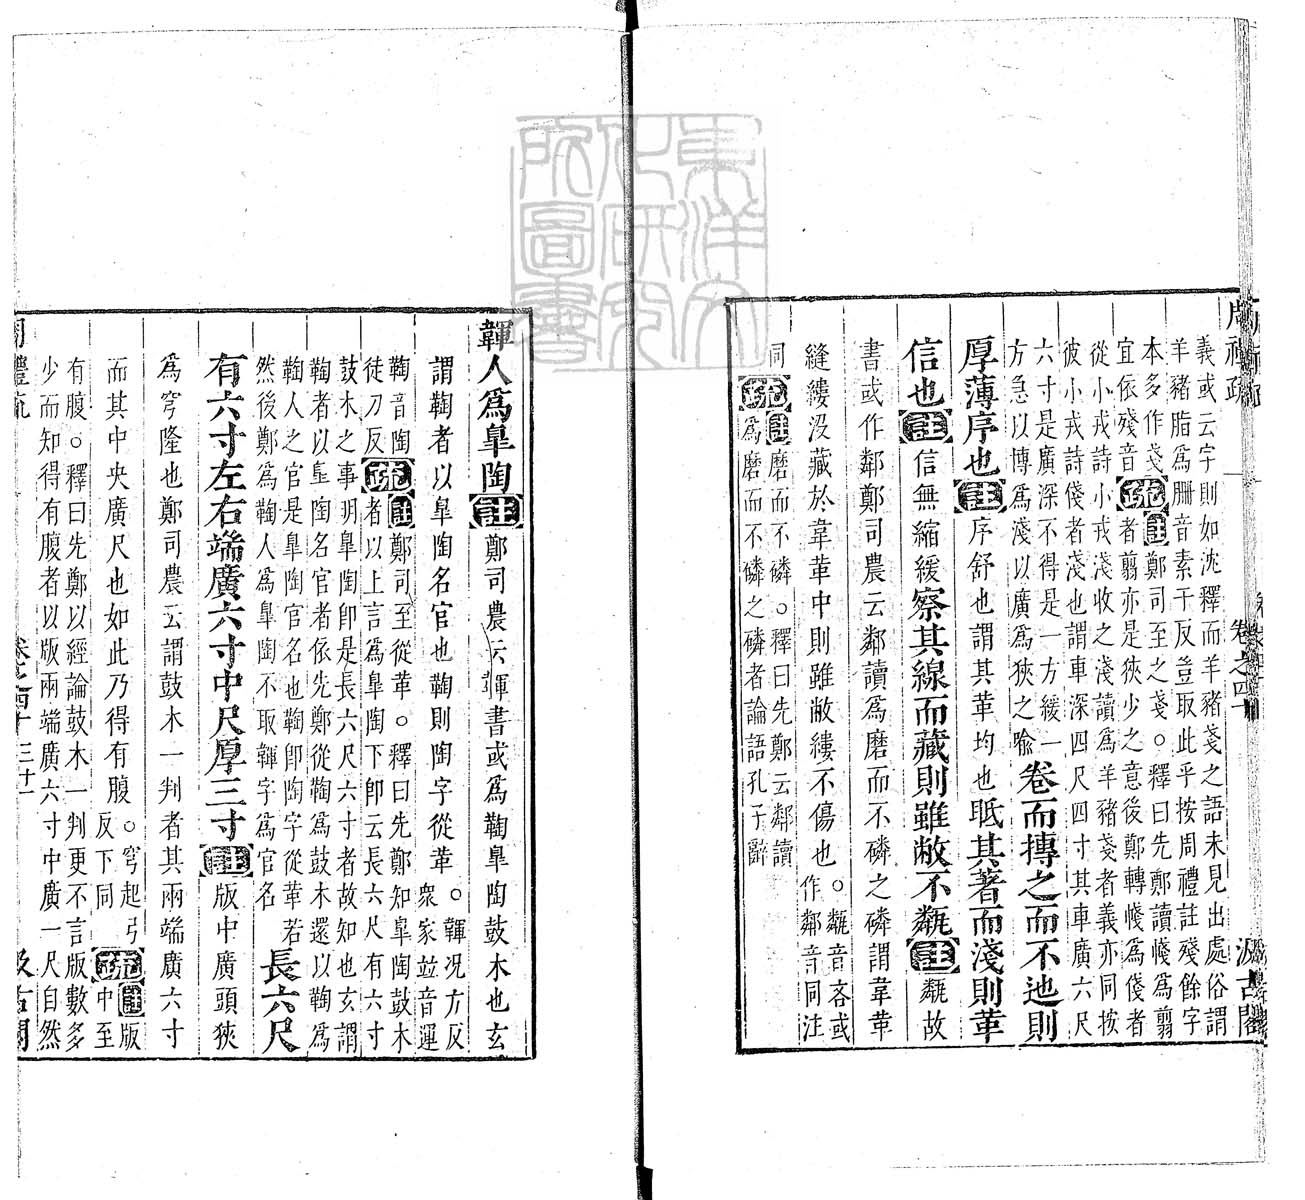 周禮疏
卷之四十
汲古閣
義或云字則如沈釋而羊豬戔之語未見出處俗謂
羊豬脂爲𦙱音素干反豈取此乎按周禮註殘餘字
本多作戔
宜依殘音
疏註鄭司至之戔。釋曰先鄭讀㡇爲翦
者翦亦是狹少之意後鄭轉㡇爲俴者
從小戎詩小戎淺收之淺讀爲羊豬戔者義亦同按
彼小戎詩俴者淺也謂車深四尺四寸其車廣六尺
六寸是廣深不得是一方緩一
方急以博爲淺以廣爲狹之喻
卷而摶之而不迆則
厚薄序也註序舒也謂其革均也眡其著而淺則革
信也註信無縮緩察其線而藏則雖敝不甐註甐故
書或作鄰鄭司農云鄰讀爲磨而不磷之磷謂韋革
縫縷沒藏於韋革中則雖敝縷不傷也。甐音吝或
作鄰音同注
同疏註磨而不磷。釋曰先鄭云鄰讀
爲磨而不磷之磷者論語孔子辭
韗人爲皐陶註鄭司農云韗書或爲鞠皐陶鼓木也玄
謂鞠者以皐陶名官也鞠則陶字從革。韗況方反
衆家並音運
鞠音陶
徒刀反
疏註鄭司至從革。釋曰先鄭知皐陶鼓木
者以上言爲皐陶下卽云長六尺有六寸
鼓木之事明皐陶卽是長六尺六寸者故知也玄謂
鞠者以皐陶名官者依先鄭從鞠爲鼓木還以鞠爲
鞠人之官是皐陶官名也鞠卽陶字從革若
然後鄭爲鞠人爲皐陶不取韗字爲官名
長六尺
有六寸左右端廣六寸中尺厚三寸註版中廣頭狹
爲穹隆也鄭司農云謂鼓木一判者其兩端廣六寸
而其中央廣尺也如此乃得有腹。穹起弓
反下同
疏註版
中至
有腹。釋曰先鄭以經論鼓木一判更不言版數多
少而知得有腹者以版兩端廣六寸中廣一尺自然
周禮疏
卷之四十
三十一
汲古閣